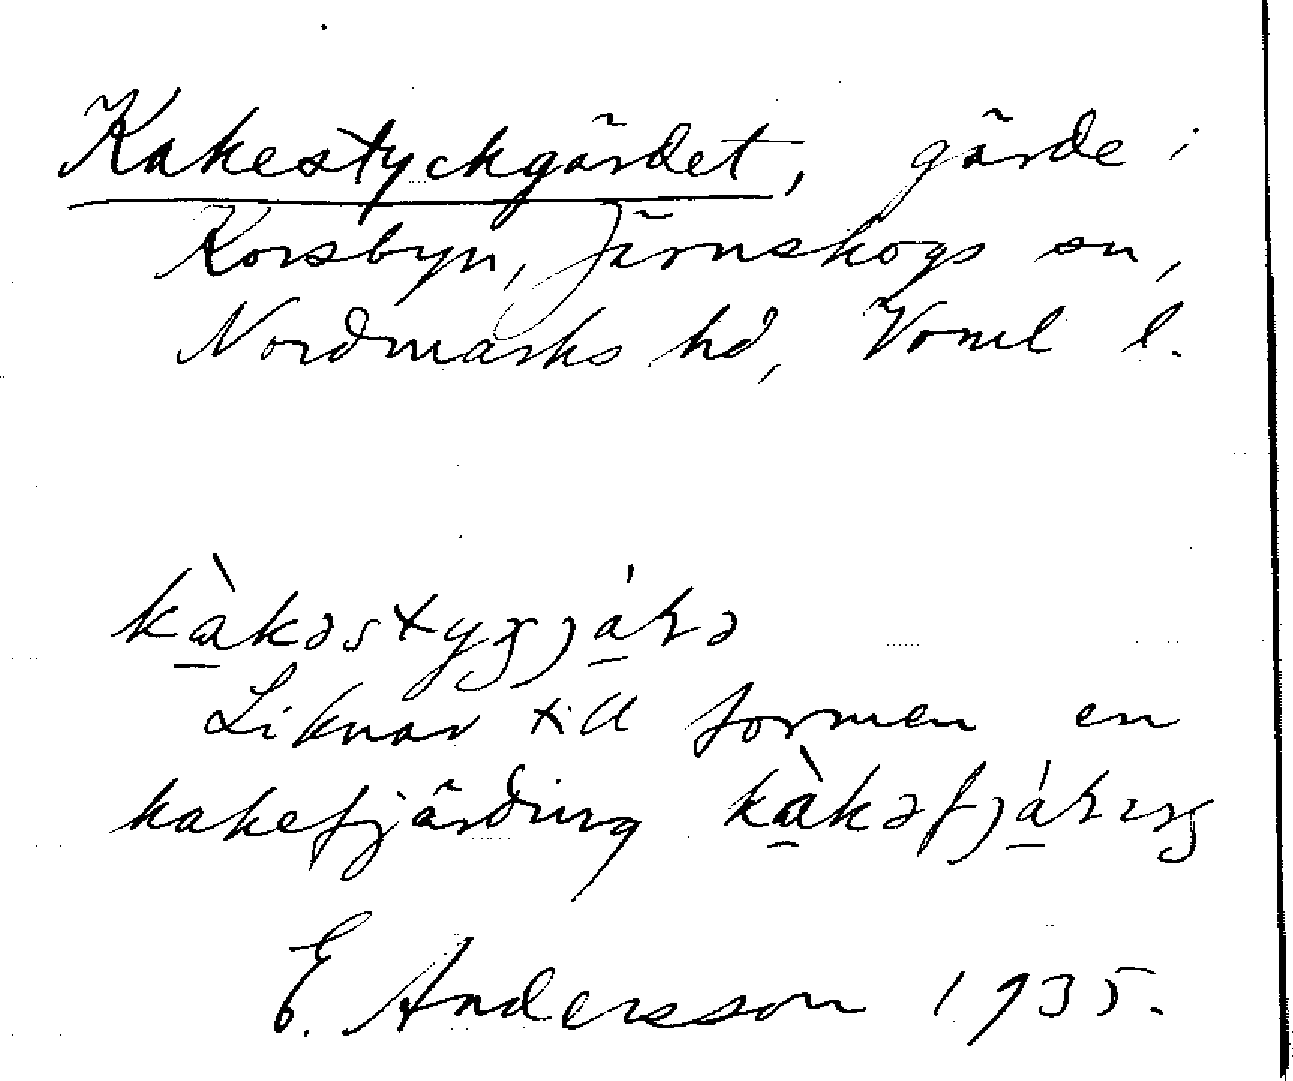 Kakestyckgärdet, gärde i
Korsbyn, Järnskogs sn,
Nordmarks hd, Värml l.
kàkəstygjáɽə
Liknar till formen en
kakefjärding kàkəfjáɽıŋ
E. Andersson 1935.